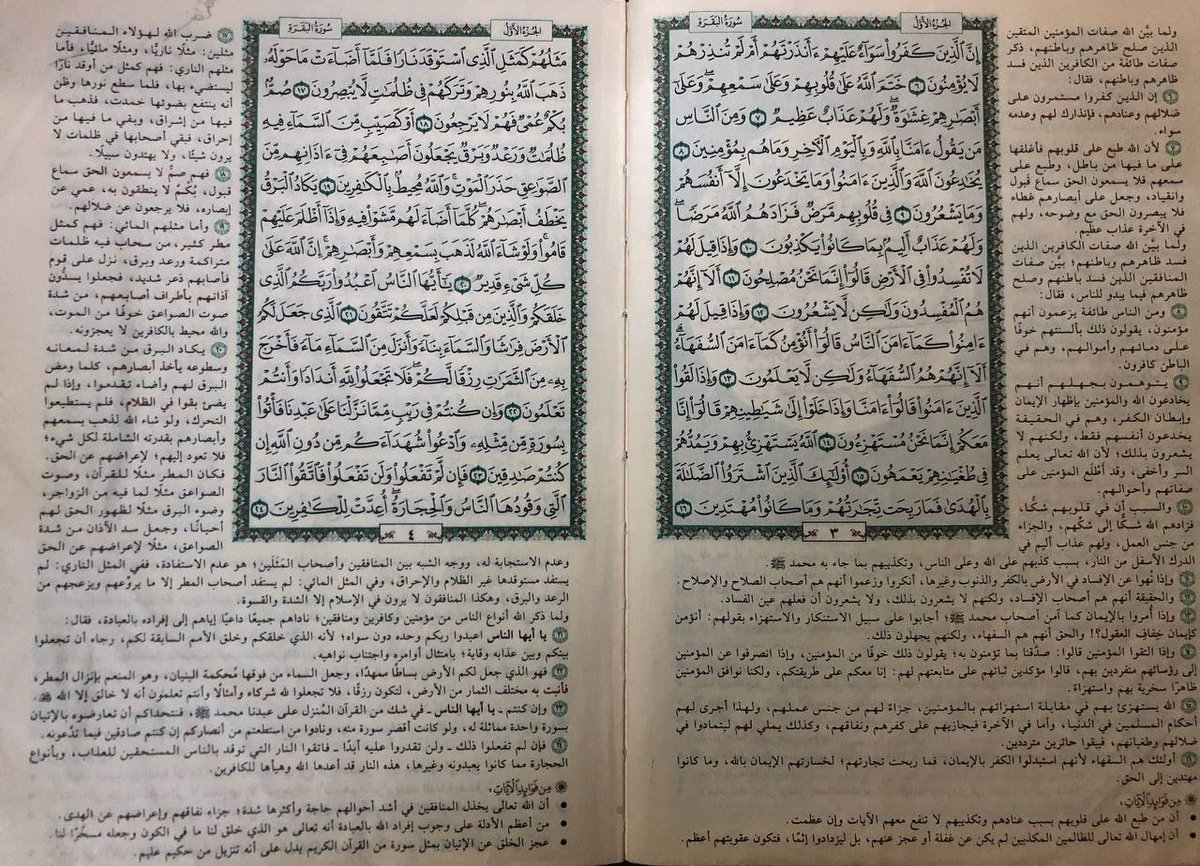 الجزء الأول
سورة البقرة
إِنَّ ٱلَّذِينَ كَفَرُوا۟ سَوَآءٌ عَلَيْهِمْ ءَأَنذَرْتَهُمْ أَمْ لَمْ تُنذِرْهُمْ
لَا يُؤْمِنُونَ ٦ خَتَمَ ٱللَّهُ عَلَىٰ قُلُوبِهِمْ وَعَلَىٰ سَمْعِهِمْ ۖ وَعَلَىٰٓ
أَبْصَٰرِهِمْ غِشَٰوَةٌ ۖ وَلَهُمْ عَذَابٌ عَظِيمٌ ٧ وَمِنَ ٱلنَّاسِ
مَن يَقُولُ ءَامَنَّا بِٱللَّهِ وَبِٱلْيَوْمِ ٱلْءَاخِرِ وَمَا هُم بِمُؤْمِنِينَ ٨
يُخَٰدِعُونَ ٱللَّهَ وَٱلَّذِينَ ءَامَنُوا۟ وَمَا يَخْدَعُونَ إِلَّآ أَنفُسَهُمْ
وَمَا يَشْعُرُونَ ٩ فِى قُلُوبِهِم مَّرَضٌ فَزَادَهُمُ ٱللَّهُ مَرَضًا ۖ
وَلَهُمْ عَذَابٌ أَلِيمٌۢ بِمَا كَانُوا۟ يَكْذِبُونَ ١٠ وَإِذَا قِيلَ لَهُمْ
لَا تُفْسِدُوا۟ فِى ٱلْأَرْضِ قَالُوٓا۟ إِنَّمَا نَحْنُ مُصْلِحُونَ ١١ أَلَآ إِنَّهُمْ
هُمُ ٱلْمُفْسِدُونَ وَلَٰكِن لَّا يَشْعُرُونَ ١٢ وَإِذَا قِيلَ لَهُمْ
ءَامِنُوا۟ كَمَآ ءَامَنَ ٱلنَّاسُ قَالُوٓا۟ أَنُؤْمِنُ كَمَآ ءَامَنَ ٱلسُّفَهَآءُ ۗ
أَلَآ إِنَّهُمْ هُمُ ٱلسُّفَهَآءُ وَلَٰكِن لَّا يَعْلَمُونَ ١٣ وَإِذَا لَقُوا۟
ٱلَّذِينَ ءَامَنُوا۟ قَالُوٓا۟ ءَامَنَّا وَإِذَا خَلَوْا۟ إِلَىٰ شَيَٰطِينِهِمْ قَالُوٓا۟ إِنَّا
مَعَكُمْ إِنَّمَا نَحْنُ مُسْتَهْزِءُونَ ١٤ ٱللَّهُ يَسْتَهْزِئُ بِهِمْ وَيَمُدُّهُمْ
فِى طُغْيَٰنِهِمْ يَعْمَهُونَ ١٥ أُو۟لَٰٓئِكَ ٱلَّذِينَ ٱشْتَرَوُا۟ ٱلضَّلَٰلَةَ
بِٱلْهُدَىٰ فَمَا رَبِحَت تِّجَٰرَتُهُمْ وَمَا كَانُوا۟ مُهْتَدِينَ ١٦
٣
ولما بيَّن الله صفات المؤمنين المتقين
الذين صلح ظاهرهم وباطنهم، ذكر
صفات طائفة من الكافرين الذين فسد
ظاهرهم وباطنهم، فقال:
٦ إن الذين كفروا مستمرون على
ضلالهم وعنادهم، فإنذارك لهم وعدمه
سواء.
٧ لأن الله طبع على قلوبهم فأغلقها
على ما فيها من باطل، وطبع على
سمعهم فلا يسمعون الحق سماع قبول
وانقياد، وجعل على أبصارهم غطاء
فلا يبصرون الحق مع وضوحه، ولهم
في الآخرة عذاب عظيم.
ولما بيَّن الله صفات الكافرين الذين
فسد ظاهرهم وباطنهم؛ بيَّن صفات
المنافقين الذين فسد باطنهم وصلح
ظاهرهم فيما يبدو للناس، فقال:
٨ ومن الناس طائفة يزعمون أنهم
مؤمنون، يقولون ذلك بألسنتهم خوفًا
على دمائهم وأموالهم، وهم في
الباطن كافرون.
٩ يتوهمون بجهلهم أنهم
يخادعون الله والمؤمنين بإظهار الإيمان
وإبطان الكفر، وهم في الحقيقة
يخدعون أنفسهم فقط، ولكنهم لا
يشعرون بذلك؛ لأن الله تعالى يعلم
السر وأخفى، وقد أطْلَع المؤمنين على
صفاتهم وأحوالهم.
١٠ والسبب أن في قلوبهم شكًّا،
فزادهم الله شكًّا إلى شكّهم، والجزاء
من جنس العمل، ولهم عذاب أليم في
الدرك الأسفل من النار، بسبب كذبهم على الله وعلى الناس، وتكذيبهم بما جاء به محمد ﷺ.
١١ وإذا نُهوا عن الإفساد في الأرض بالكفر والذنوب وغيرها، أنكروا وزعموا أنهم هم أصحاب الصلاح والإصلاح.
١٢ والحقيقة أنهم هم أصحاب الإفساد، ولكنهم لا يشعرون بذلك، ولا يشعرون أن فعلهم عين الفساد.
١٣ وإذا أُمروا بالإيمان كما آمن أصحاب محمد ﷺ؛ أجابوا على سبيل الاستنكار والاستهزاء بقولهم: أنؤمن
كإيمان خِفاف العقول؟! والحق أنهم هم السفهاء، ولكنهم يجهلون ذلك.
١٤ وإذا التقوا المؤمنين قالوا: صدَّقنا بما تؤمنون به؛ يقولون ذلك خوفًا من المؤمنين، وإذا انصرفوا عن المؤمنين
إلى رؤسائهم منفردين بهم، قالوا مؤكدين ثباتهم على متابعتهم لهم: إنا معكم على طريقتكم، ولكنا نوافق المؤمنين
ظاهرًا سخرية بهم واستهزاءً.
١٥ الله يستهزئ بهم في مقابلة استهزائهم بالمؤمنين، جزاءً لهم من جنس عملهم، ولهذا أجرى لهم
أحكام المسلمين في الدنيا، وأما في الآخرة فيجازيهم على كفرهم ونفاقهم، وكذلك يملي لهم ليتمادوا في
ضلالهم وطغيانهم، فيبقوا حائرين مترددين.
١٦ أولئك هم السفهاء لأنهم استبدلوا الكفر بالإيمان، فما ربحت تجارتهم؛ لخسارتهم الإيمان بالله، وما كانوا
مهتدين إلى الحق.
من فوائد الآيات:
• أن من طبع الله على قلوبهم بسبب عنادهم وتكذيبهم لا تنفع معهم الآيات وإن عظمت.
• أن إمهال الله تعالى للظالمين المكذبين لم يكن عن غفلة أو عجز عنهم، بل ليزدادوا إثمًا، فتكون عقوبتهم أعظم.
الجزء الأول
سورة البقرة
مَثَلُهُمْ كَمَثَلِ ٱلَّذِى ٱسْتَوْقَدَ نَارًا فَلَمَّآ أَضَآءَتْ مَا حَوْلَهُۥ
ذَهَبَ ٱللَّهُ بِنُورِهِمْ وَتَرَكَهُمْ فِى ظُلُمَٰتٍ لَّا يُبْصِرُونَ ١٧ صُمٌّۢ
بُكْمٌ عُمْىٌ فَهُمْ لَا يَرْجِعُونَ ١٨ أَوْ كَصَيِّبٍ مِّنَ ٱلسَّمَآءِ فِيهِ
ظُلُمَٰتٌ وَرَعْدٌ وَبَرْقٌ يَجْعَلُونَ أَصَٰبِعَهُمْ فِىٓ ءَاذَانِهِم مِّنَ
ٱلصَّوَٰعِقِ حَذَرَ ٱلْمَوْتِ ۚ وَٱللَّهُ مُحِيطٌۢ بِٱلْكَٰفِرِينَ ١٩ يَكَادُ ٱلْبَرْقُ
يَخْطَفُ أَبْصَٰرَهُمْ ۖ كُلَّمَآ أَضَآءَ لَهُم مَّشَوْا۟ فِيهِ وَإِذَآ أَظْلَمَ عَلَيْهِمْ
قَامُوا۟ ۚ وَلَوْ شَآءَ ٱللَّهُ لَذَهَبَ بِسَمْعِهِمْ وَأَبْصَٰرِهِمْ ۚ إِنَّ ٱللَّهَ عَلَىٰ
كُلِّ شَىْءٍ قَدِيرٌ ٢٠ يَٰٓأَيُّهَا ٱلنَّاسُ ٱعْبُدُوا۟ رَبَّكُمُ ٱلَّذِى
خَلَقَكُمْ وَٱلَّذِينَ مِن قَبْلِكُمْ لَعَلَّكُمْ تَتَّقُونَ ٢١ ٱلَّذِى جَعَلَ لَكُمُ
ٱلْأَرْضَ فِرَٰشًا وَٱلسَّمَآءَ بِنَآءً وَأَنزَلَ مِنَ ٱلسَّمَآءِ مَآءً فَأَخْرَجَ
بِهِۦ مِنَ ٱلثَّمَرَٰتِ رِزْقًا لَّكُمْ ۖ فَلَا تَجْعَلُوا۟ لِلَّهِ أَندَادًا وَأَنتُمْ
تَعْلَمُونَ ٢٢ وَإِن كُنتُمْ فِى رَيْبٍ مِّمَّا نَزَّلْنَا عَلَىٰ عَبْدِنَا فَأْتُوا۟
بِسُورَةٍ مِّن مِّثْلِهِۦ وَٱدْعُوا۟ شُهَدَآءَكُم مِّن دُونِ ٱللَّهِ إِن
كُنتُمْ صَٰدِقِينَ ٢٣ فَإِن لَّمْ تَفْعَلُوا۟ وَلَن تَفْعَلُوا۟ فَٱتَّقُوا۟ ٱلنَّارَ
ٱلَّتِى وَقُودُهَا ٱلنَّاسُ وَٱلْحِجَارَةُ ۖ أُعِدَّتْ لِلْكَٰفِرِينَ ٢٤
٤
١٧ ضرب الله لهؤلاء المنافقين
مثلين: مثلًا ناريًّا، ومثلًا مائيًّا، فأما
مثلهم الناري: فهم كمثل من أوقد نارًا
ليستضيء بها، فلما سطع نورها وظن
أنه ينتفع بضوئها خمدت، فذهب ما
فيها من إشراق، وبقي ما فيها من
إحراق، فبقي أصحابها في ظلمات لا
يرون شيئًا، ولا يهتدون سبيلًا.
١٨ فهم صمٌّ لا يسمعون الحق سماع
قبول، بُكْمٌ لا ينطقون به، عمي عن
إبصاره، فلا يرجعون عن ضلالهم.
١٩ وأما مثلهم المائي: فهم كمثل
مطر كثير، من سحاب فيه ظلمات
متراكمة ورعد وبرق، نزل على قوم
فأصابهم ذعر شديد، فجعلوا يسدُّون
آذانهم بأطراف أصابعهم، من شدة
صوت الصواعق خوفًا من الموت،
والله محيط بالكافرين لا يعجزونه.
٢٠ يكاد البرق من شدة لمعانه
وسطوعه يأخذ أبصارهم، كلما ومض
البرق لهم وأضاء تقدموا، وإذا لم
يضئ بقوا في الظلام، فلم يستطيعوا
التحرك، ولو شاء الله لذهب بسمعهم
وأبصارهم بقدرته الشاملة لكل شيء؛
فلا تعود إليهم؛ لإعراضهم عن الحق.
فكان المطر مثلًا للقرآن، وصوت
الصواعق مثلًا لما فيه من الزواجر،
وضوء البرق مثلًا لظهور الحق لهم
أحيانًا، وجعل سد الآذان من شدة
الصواعق، مثلًا لإعراضهم عن الحق
وعدم الاستجابة له، ووجه الشبه بين المنافقين وأصحاب المَثَلَين؛ هو عدم الاستفادة، ففي المثل الناري: لم
يستفد مستوقدها غير الظلام والإحراق، وفي المثل المائي: لم يستفد أصحاب المطر إلا ما يروّعهم ويزعجهم من
الرعد والبرق، وهكذا المنافقون لا يرون في الإسلام إلا الشدة والقسوة.
ولما ذكر الله أنواع الناس من مؤمنين وكافرين ومنافقين؛ ناداهم جميعًا داعيًا إياهم إلى إفراده بالعبادة، فقال:
٢١ يا أيها الناس اعبدوا ربكم وحده دون سواه؛ لأنه الذي خلقكم وخلق الأمم السابقة لكم، رجاء أن تجعلوا
بينكم وبين عذابه وقاية؛ بامتثال أوامره واجتناب نواهيه.
٢٢ فهو الذي جعل لكم الأرض بساطًا ممهدًا، وجعل السماء من فوقها مُحكمة البنيان، وهو المنعم بإنزال المطر،
فأنبت به مختلف الثمار من الأرض، لتكون رزقًا، فلا تجعلوا لله شركاء وأمثالًا وأنتم تعلمون أنه لا خالق إلا الله ﷻ.
٢٣ وإن كنتم - يا أيها الناس - في شك من القرآن المُنزل على عبدنا محمد ﷺ، فنتحداكم أن تعارضوه بالإتيان
بسورة واحدة مماثلة له، ولو كانت أقصر سورة منه، ونادوا من استطعتم من أنصاركم إن كنتم صادقين فيما تدَّعونه.
٢٤ فإن لم تفعلوا ذلك - ولن تقدروا عليه أبدًا - فاتقوا النار التي توقد بالناس المستحقين للعذاب، وبأنواع
الحجارة مما كانوا يعبدونه وغيرها، هذه النار قد أعدها الله وهيأها للكافرين.
من فوائد الآيات:
• أن الله تعالى يخذل المنافقين في أشد أحوالهم حاجة وأكثرها شدة؛ جزاء نفاقهم وإعراضهم عن الهدى.
• من أعظم الأدلة على وجوب إفراد الله بالعبادة أنه تعالى هو الذي خلق لنا ما في الكون وجعله مسخَّرًا لنا.
• عجز الخلق عن الإتيان بمثل سورة من القرآن الكريم يدل على أنه تنزيل من حكيم عليم.